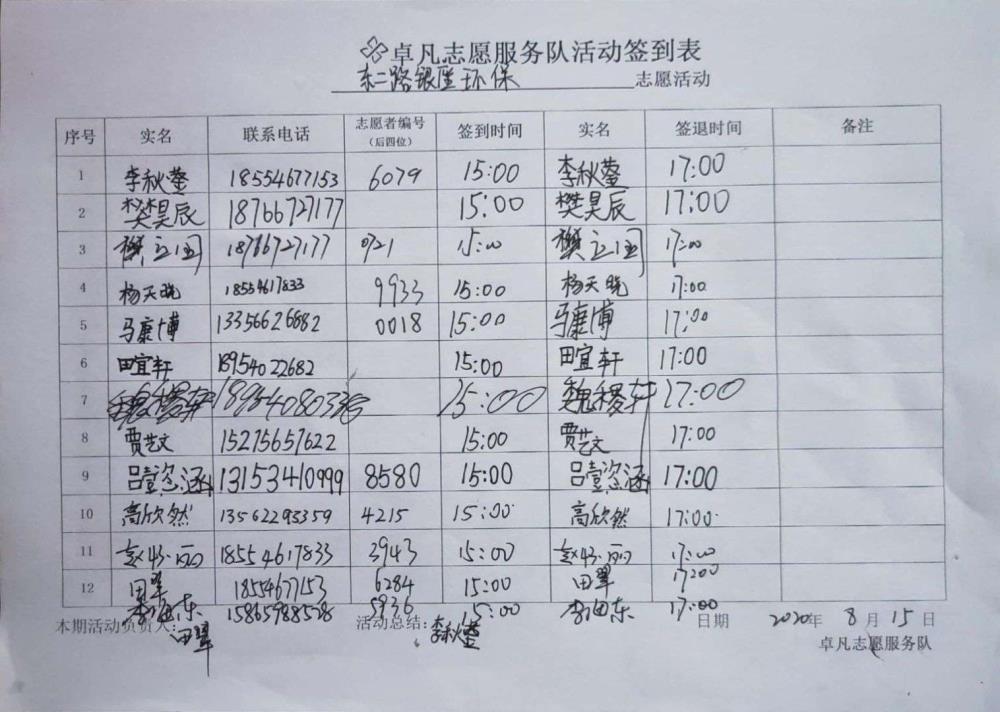 卓凡志愿服务队活动签到表
东二路银座环保 志愿活动
序号 实名 联系电话 志愿者编号（后四位） 签到时间 实名 签退时间 备注
1 李秋莹 18554677153 6079 15:00 李秋莹 17:00
2 樊昊辰 18766727177 15:00 樊昊辰 17:00
3 樊立国 18766727177 0721 15:00 樊立国 17:00
4 杨天晓 18554617833 9933 15:00 杨天晓 17:00
5 马康博 13356626882 0018 15:00 马康博 17:00
6 田宜轩 18954022682 15:00 田宜轩 17:00
7 魏稷轩 15:00 魏稷轩 17:00
8 贾艺文 15275657622 15:00 贾艺文 17:00
9 吕壹恣涵 13153410999 8580 15:00 吕壹恣涵 17:00
10 高欣然 13562293359 4215 15:00 高欣然 17:00
11 赵 丽 18554617833 3943 15:00 赵 丽 17:00
12 田翠 18554677153 6284 15:00 田翠 17:00
李 东 15865988528 5936 15:00 李 东 17:00
本期活动负责人: 田翠 活动总结: 李秋莹 日期 2020年 8月 15日
卓凡志愿服务队